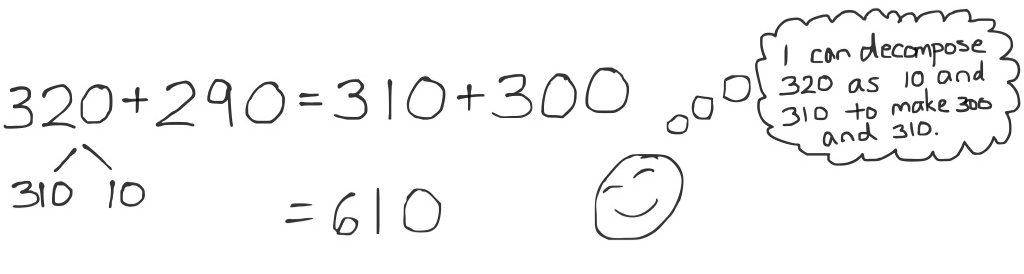 320+290=310+300
310 10
=610
I can decompose
320 as 10 and
310 to make 300
and 310.